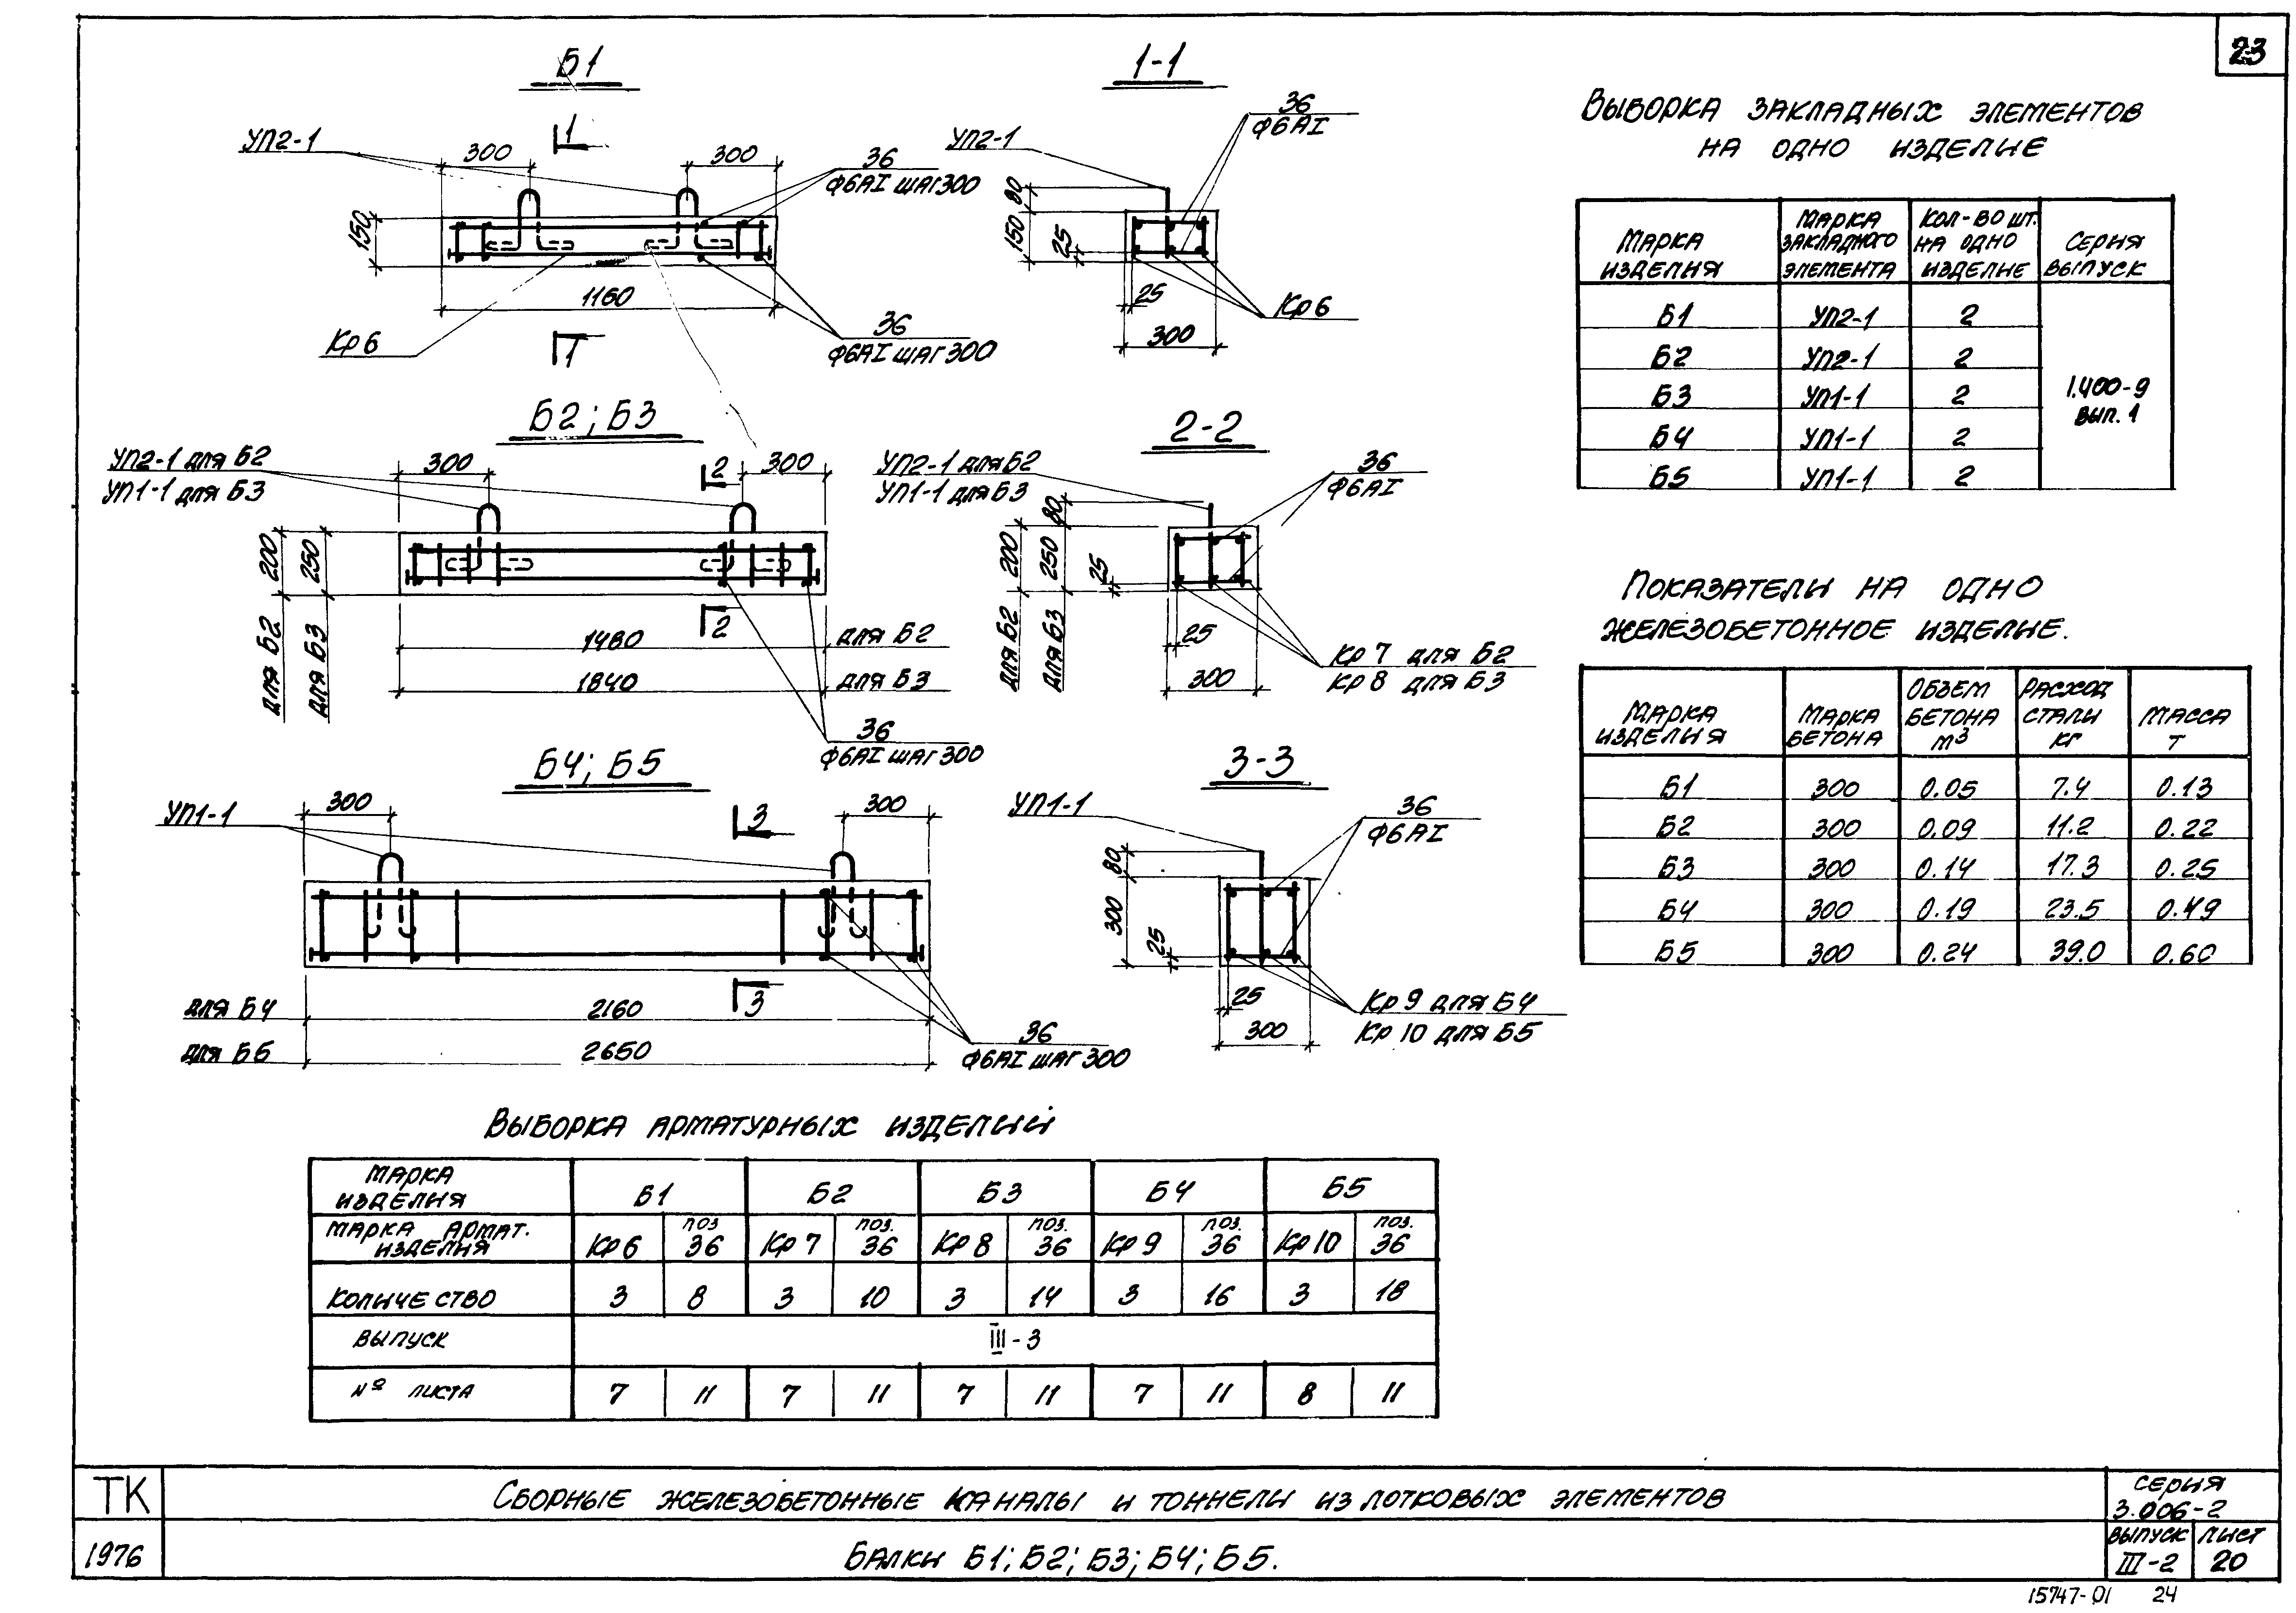 23
Б1
1-1
УП2-1
300
300
1
36
Ф6АI шаг 300
150
1160
Кр6
1
36
Ф6АI шаг 300
УП2-1
36
Ф6АI
80
150
25
25
300
Кр6
Б2; Б3
2-2
УП2-1 для Б2
УП1-1 для Б3
300
2
300
200
250
для Б2
для Б3
2
1480
для Б2
1840
для Б3
36
Ф6АI шаг 300
УП2-1 для Б2
УП1-1 для Б3
36
Ф6АI
80
200
250
25
для Б2
для Б3
25
300
Кр 7 для Б2
Кр 8 для Б3
Б4; Б5
3-3
УП1-1
300
3
300
3
для Б4
2160
для Б5
2650
36
Ф6АI шаг 300
УП1-1
36
Ф6АI
80
300
25
25
300
Кр 9 для Б4
Кр 10 для Б5
Выборка закладных элементов
на одно изделие
Марка изделия
Марка закладного элемента
Кол-во шт. на одно изделие
Серия выпуск
Б1 УП2-1 2
Б2 УП2-1 2
Б3 УП1-1 2
Б4 УП1-1 2
Б5 УП1-1 2
1.400-9
вып. 1
Показатели на одно
железобетонное изделие.
Марка изделия
Марка бетона
Объем бетона м3
Расход стали кг
Масса т
Б1 300 0.05 7.4 0.13
Б2 300 0.09 11.2 0.22
Б3 300 0.14 17.3 0.25
Б4 300 0.19 23.5 0.49
Б5 300 0.24 39.0 0.60
Выборка арматурных изделий
Марка изделия Б1 Б2 Б3 Б4 Б5
Марка армат. изделия Кр 6 поз 36 Кр 7 поз. 36 Кр 8 поз. 36 Кр 9 поз. 36 Кр 10 поз. 36
Количество 3 8 3 10 3 14 3 16 3 18
Выпуск III-3
№ листа 7 11 7 11 7 11 7 11 8 11
ТК
1976
Сборные железобетонные каналы и тоннели из лотковых элементов
Балки Б1; Б2; Б3; Б4; Б5.
Серия
3.006-2
Выпуск
III-2
Лист
20
15747-01 24